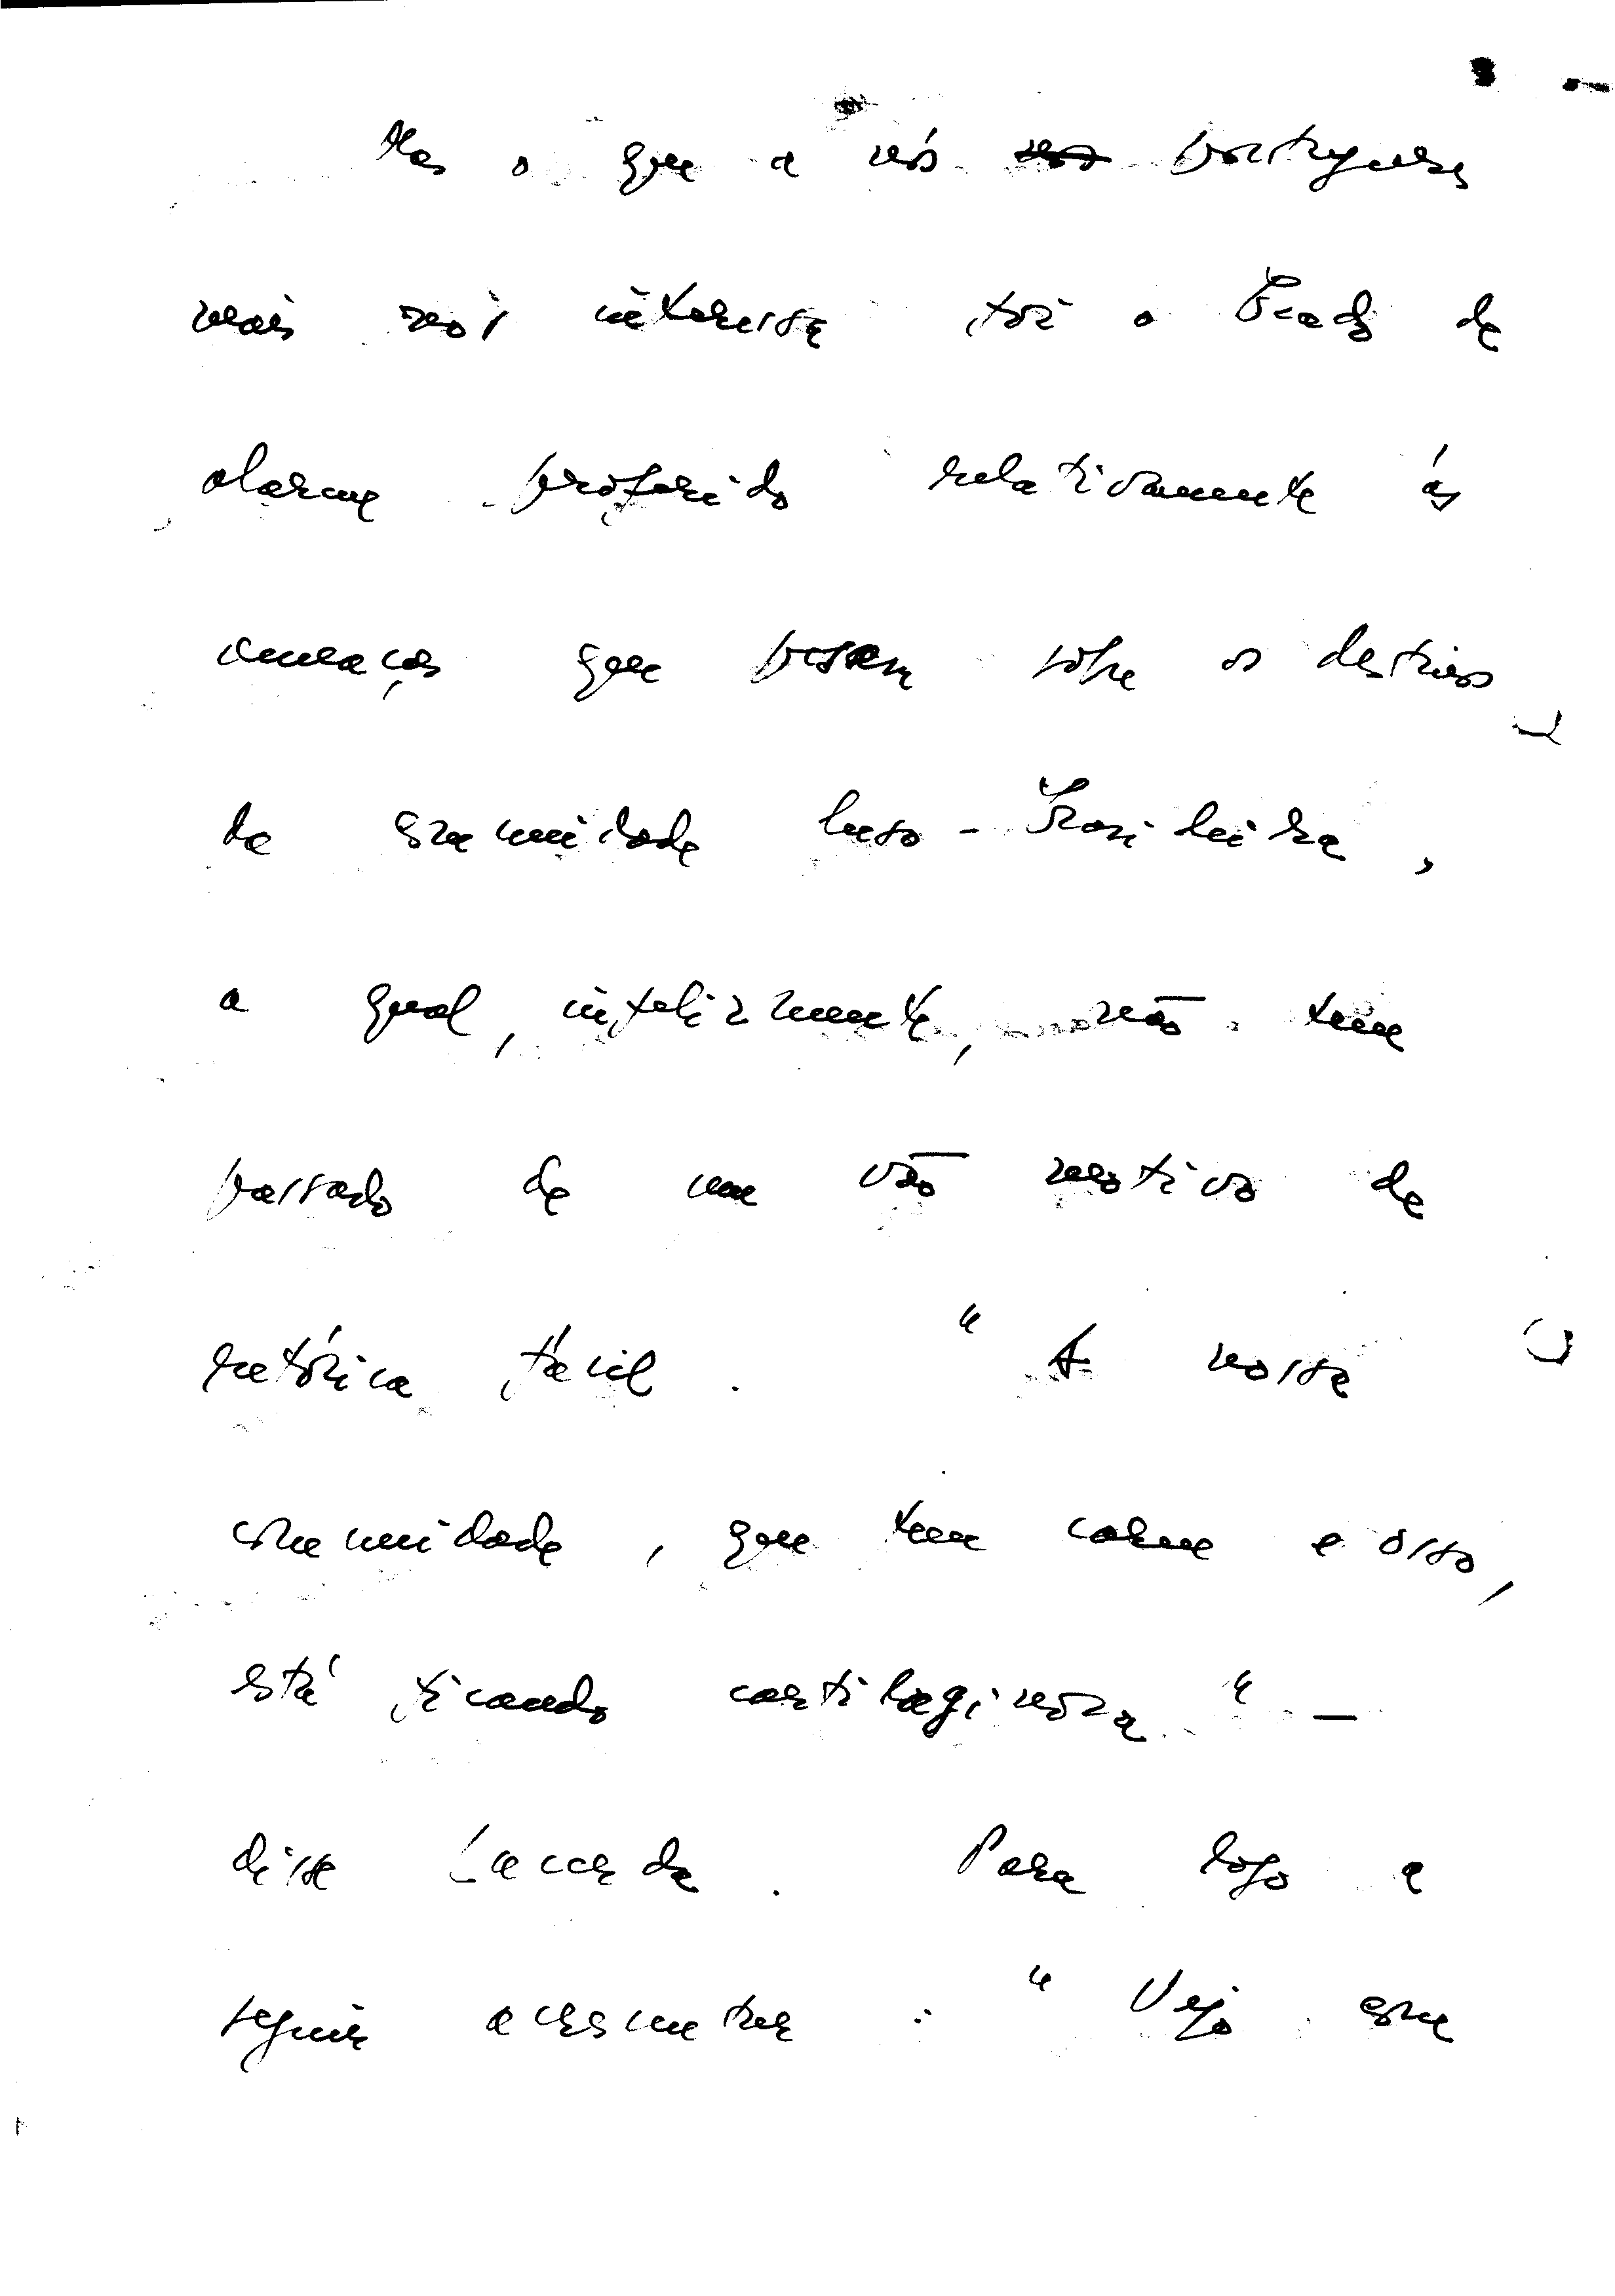 Mas o que a nós portugueses
mais nos interessa foi o brado de
alarme proferido relativamente às
ameaças que pesam sobre os destinos
da comunidade luso-brasileira,
a qual, infelizmente, não tem
passado de um vão motivo de
retórica fácil. "A nossa
comunidade, que tem carne e osso,
está ficando cartilaginosa" –
disse Lacerda. Para logo a
seguir acrescentar: "Vejo com